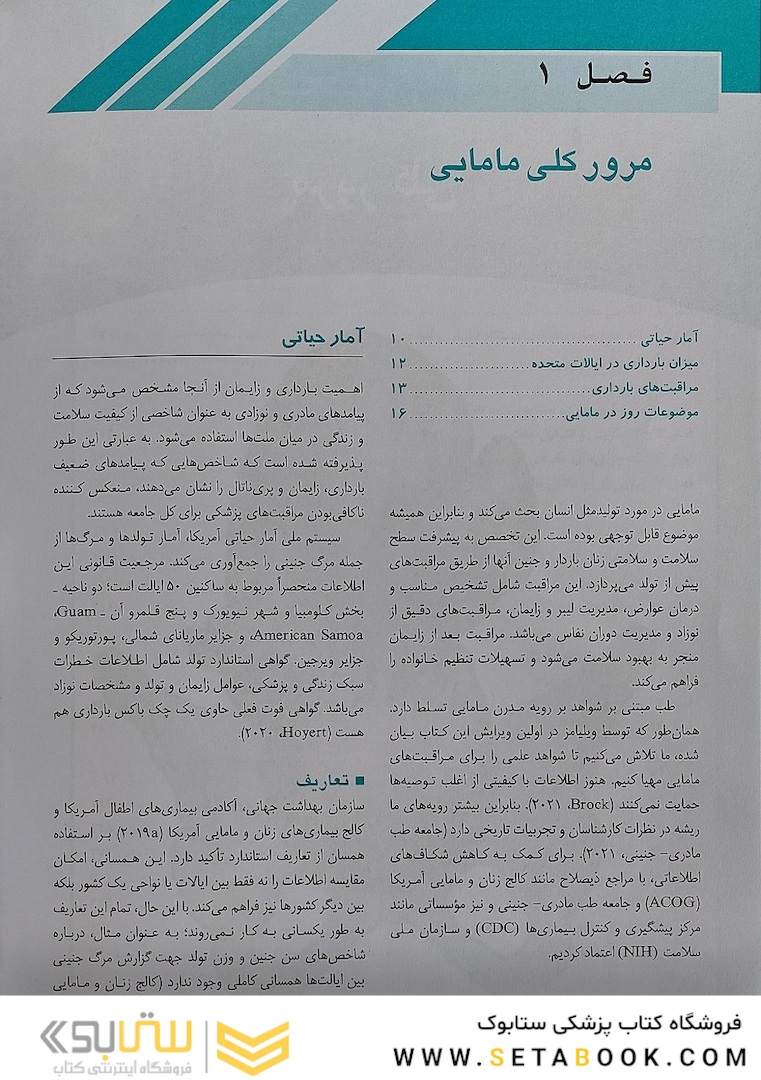 فصل ۱
مرور کلی مامایی
آمار حیاتی ........................................ ۱۰
میزان بارداری در ایالات متحده ........................ ۱۲
مراقبت‌های بارداری ................................ ۱۳
موضوعات روز در مامایی ............................ ۱۶
مامایی در مورد تولیدمثل انسان بحث می‌کند و بنابراین همیشه
موضوع قابل توجهی بوده است. این تخصص به پیشرفت سطح
سلامت و سلامتی زنان باردار و جنین آنها از طریق مراقبت‌های
پیش از تولد می‌پردازد. این مراقبت شامل تشخیص مناسب و
درمان عوارض، مدیریت لیبر و زایمان، مراقبت‌های دقیق از
نوزاد و مدیریت دوران نفاس می‌باشد. مراقبت بعد از زایمان
منجر به بهبود سلامت می‌شود و تسهیلات تنظیم خانواده را
فراهم می‌کند.
طب مبتنی بر شواهد بر رویه مدرن مامایی تسلط دارد.
همان‌طور که توسط ویلیامز در اولین ویرایش این کتاب بیان
شده، ما تلاش می‌کنیم تا شواهد علمی را برای مراقبت‌های
مامایی مهیا کنیم. هنوز اطلاعات با کیفیتی از اغلب توصیه‌ها
حمایت نمی‌کنند (Brock، ۲۰۲۱). بنابراین بیشتر رویه‌های ما
ریشه در نظرات کارشناسان و تجربیات تاریخی دارد (جامعه طب
مادری- جنینی، ۲۰۲۱). برای کمک به کاهش شکاف‌های
اطلاعاتی، با مراجع ذیصلاح مانند کالج زنان و مامایی آمریکا
(ACOG) و جامعه طب مادری- جنینی و نیز مؤسساتی مانند
مرکز پیشگیری و کنترل بیماری‌ها (CDC) و سازمان ملی
سلامت (NIH) اعتماد کردیم.
آمار حیاتی
اهمیت بارداری و زایمان از آنجا مشخص می‌شود که از
پیامدهای مادری و نوزادی به عنوان شاخصی از کیفیت سلامت
و زندگی در میان ملت‌ها استفاده می‌شود. به عبارتی این طور
پذیرفته شده است که شاخص‌هایی که پیامدهای ضعیف
بارداری، زایمان و پری‌ناتال را نشان می‌دهند، منعکس کننده
ناکافی‌بودن مراقبت‌های پزشکی برای کل جامعه هستند.
سیستم ملی آمار حیاتی آمریکا، آمار تولدها و مرگ‌ها از
جمله مرگ جنینی را جمع‌آوری می‌کند. مرجعیت قانونی این
اطلاعات منحصراً مربوط به ساکنین ۵۰ ایالت است؛ دو ناحیه ـ
بخش کلومبیا و شهر نیویورک و پنج قلمرو آن ـ Guam،
American Samoa، و جزایر ماریانای شمالی، پورتوریکو و
جزایر ویرجین. گواهی استاندارد تولد شامل اطلاعات خطرات
سبک زندگی و پزشکی، عوامل زایمان و تولد و مشخصات نوزاد
می‌باشد. گواهی فوت فعلی حاوی یک چک باکس بارداری هم
هست (Hoyert، ۲۰۲۰).
■ تعاریف
سازمان بهداشت جهانی، آکادمی بیماری‌های اطفال آمریکا و
کالج بیماری‌های زنان و مامایی آمریکا (۲۰۱۹a) بر استفاده
همسان از تعاریف استاندارد تأکید دارد. این همسانی، امکان
مقایسه اطلاعات را نه فقط بین ایالات یا نواحی یک کشور بلکه
بین دیگر کشورها نیز فراهم می‌کند. با این حال، تمام این تعاریف
به طور یکسانی به کار نمی‌روند؛ به عنوان مثال، درباره
شاخص‌های سن جنین و وزن تولد جهت گزارش مرگ جنینی
بین ایالت‌ها همسانی کاملی وجود ندارد (کالج زنان و مامایی
فروشگاه کتاب پزشکی ستابوک
WWW.SETABOOK.COM
ستابوک
فروشگاه اینترنتی کتاب